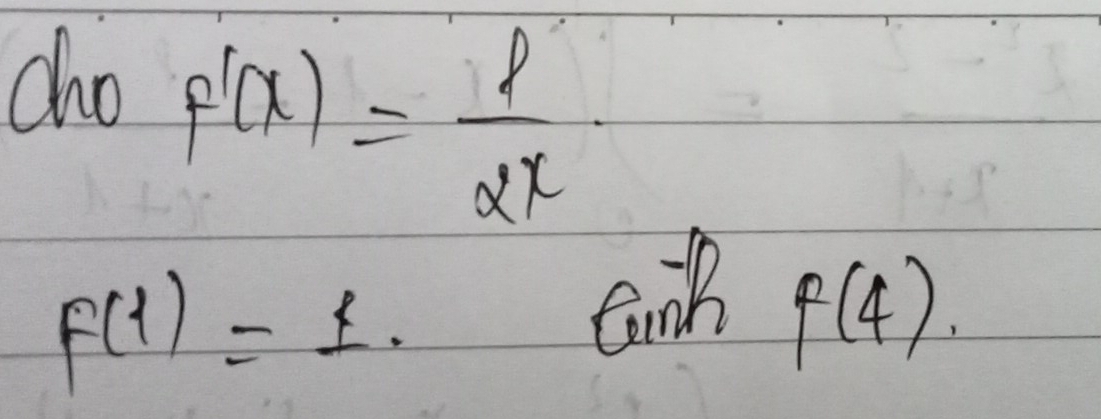 Cho f'(x) = 1/2x.
f(1) = 1. tính f(4).